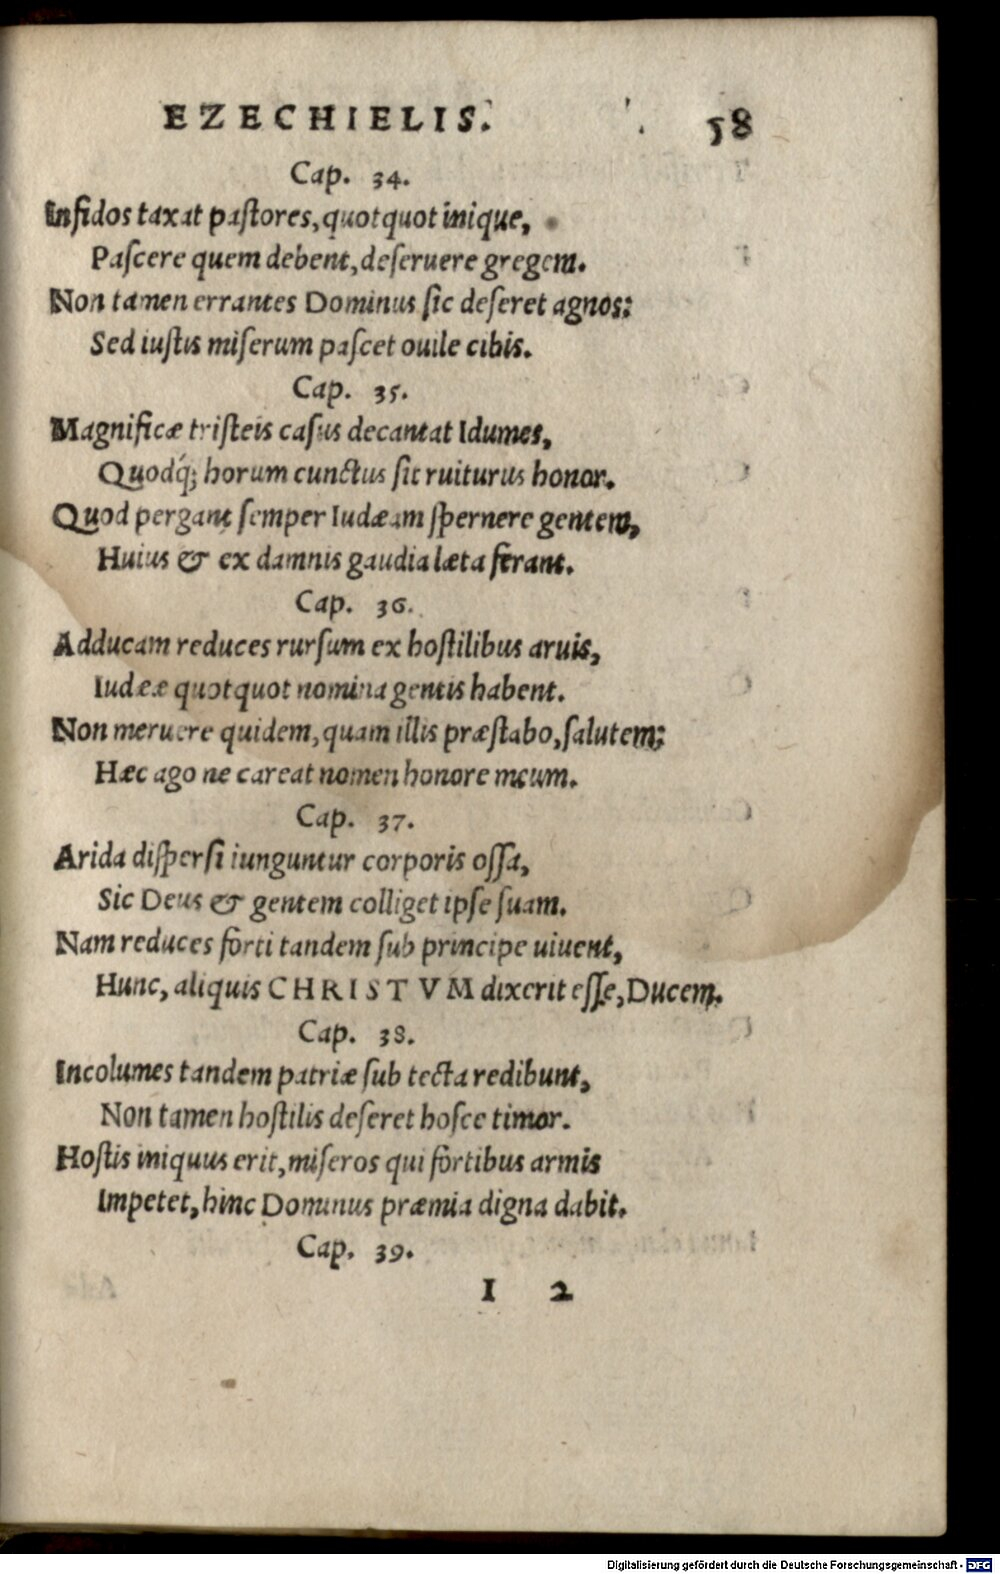 EZECHIELIS. 58
Cap. 34.
Infidos taxat paſtores, quotquot inique,
Paſcere quem debent, deſeruere gregem.
Non tamen errantes Dominus ſic deſeret agnos:
Sed iuſtis miſerum paſcet ouile cibis.
Cap. 35.
Magnificæ triſteis caſus decantat Idumes,
Quodq́; horum cunctus ſit ruiturus honor.
Quod pergant ſemper Iudæam ſpernere gentem,
Huius & ex damnis gaudia læta ferant.
Cap. 36.
Adducam reduces rurſum ex hoſtilibus aruis,
Iudeæ quotquot nomina gentis habent.
Non meruere quidem, quam illis præſtabo, ſalutem:
Hæc ago ne careat nomen honore meum.
Cap. 37.
Arida diſperſi iunguntur corporis oſſa,
Sic Deus & gentem colliget ipſe ſuam.
Nam reduces forti tandem ſub principe uiuent,
Hunc, aliquis CHRISTVM dixerit eſſe, Ducem.
Cap. 38.
Incolumes tandem patriæ ſub tecta redibunt,
Non tamen hoſtilis deſeret hoſce timor.
Hoſtis iniquus erit, miſeros qui fortibus armis
Impetet, hinc Dominus præmia digna dabit.
Cap. 39.
I 2
Digitalisierung gefördert durch die Deutsche Forschungsgemeinschaft - DFG